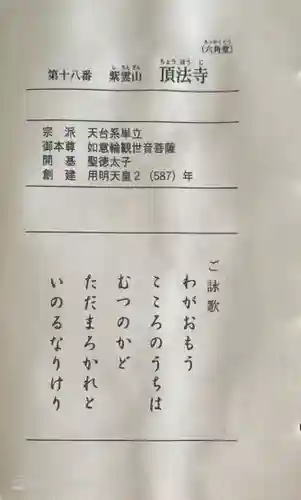 ろっかくどう
(六角堂)
し うんざん ちょうほうじ
第十八番 紫雲山 頂法寺
宗派 天台系単立
御本尊 如意輪観世音菩薩
開基 聖徳太子
創建 用明天皇2(587)年
ご詠歌
わがおもう
こころのうちは
むつのかど
ただまろかれと
いのるなりけり